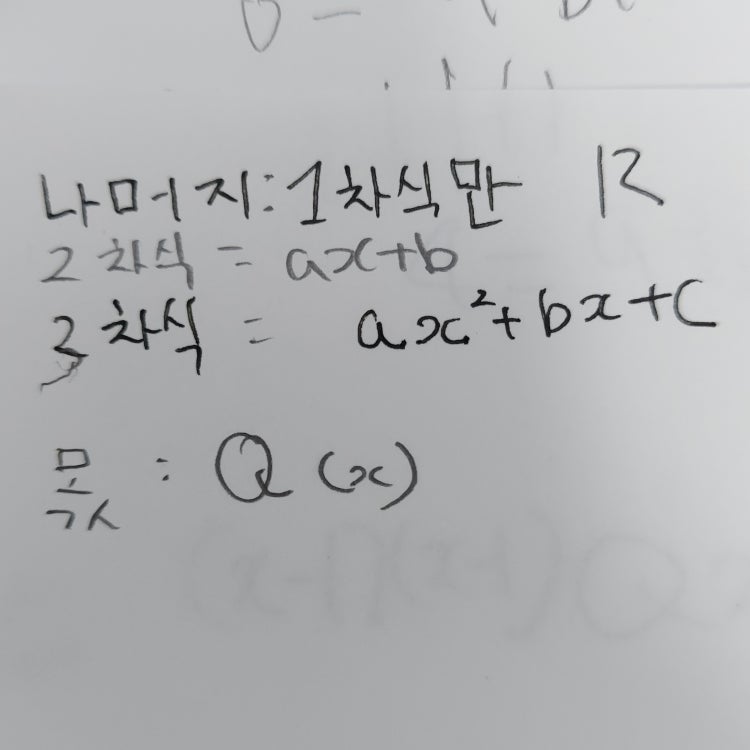 나머지: 1차식만 R
2차식 = ax+b
3차식 = ax²+bx+c
몫 : Q(x)